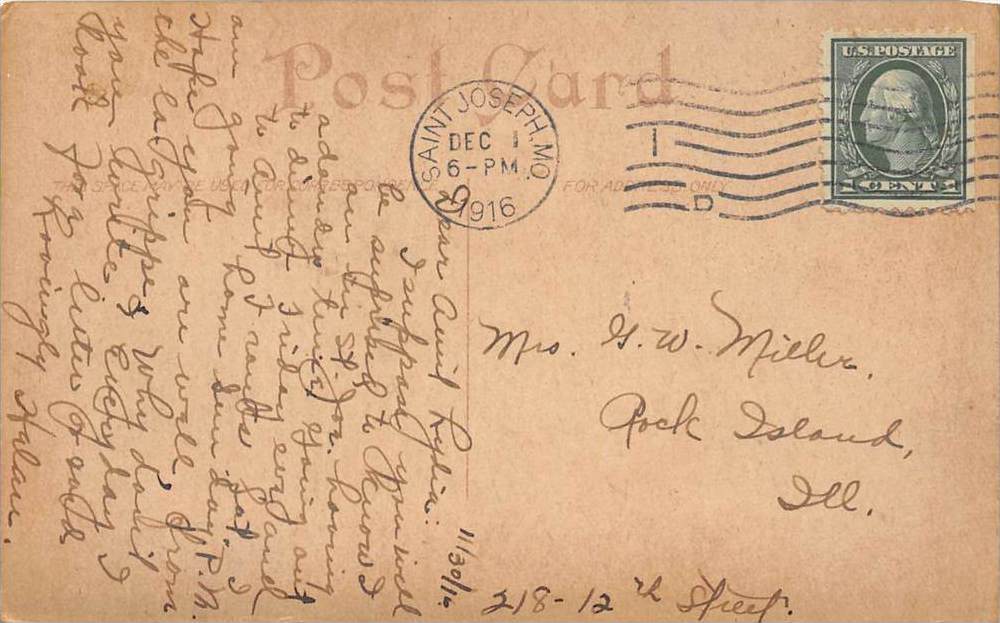 Post Card
THIS SPACE MAY BE USED FOR CORRESPONDENCE
FOR ADDRESS ONLY
U.S. POSTAGE
1 CENT 1
SAINT JOSEPH, MO.
DEC 1
6-PM
1916
1
D
11/30/16
Dear Aunt Lydia:
I suppose you will
be suprised to know I
am in St. Joe. having
a dandy time, going out
to dinner Friday eve and
to Aunt I
am going home Sun day P.M.
Hope you are well from
the lagrippe. Why don't
you write? Every day I
look for a letter
Lovingly
Mrs. G. W. Miller.
Rock Island,
Ill.
218-12th Street.